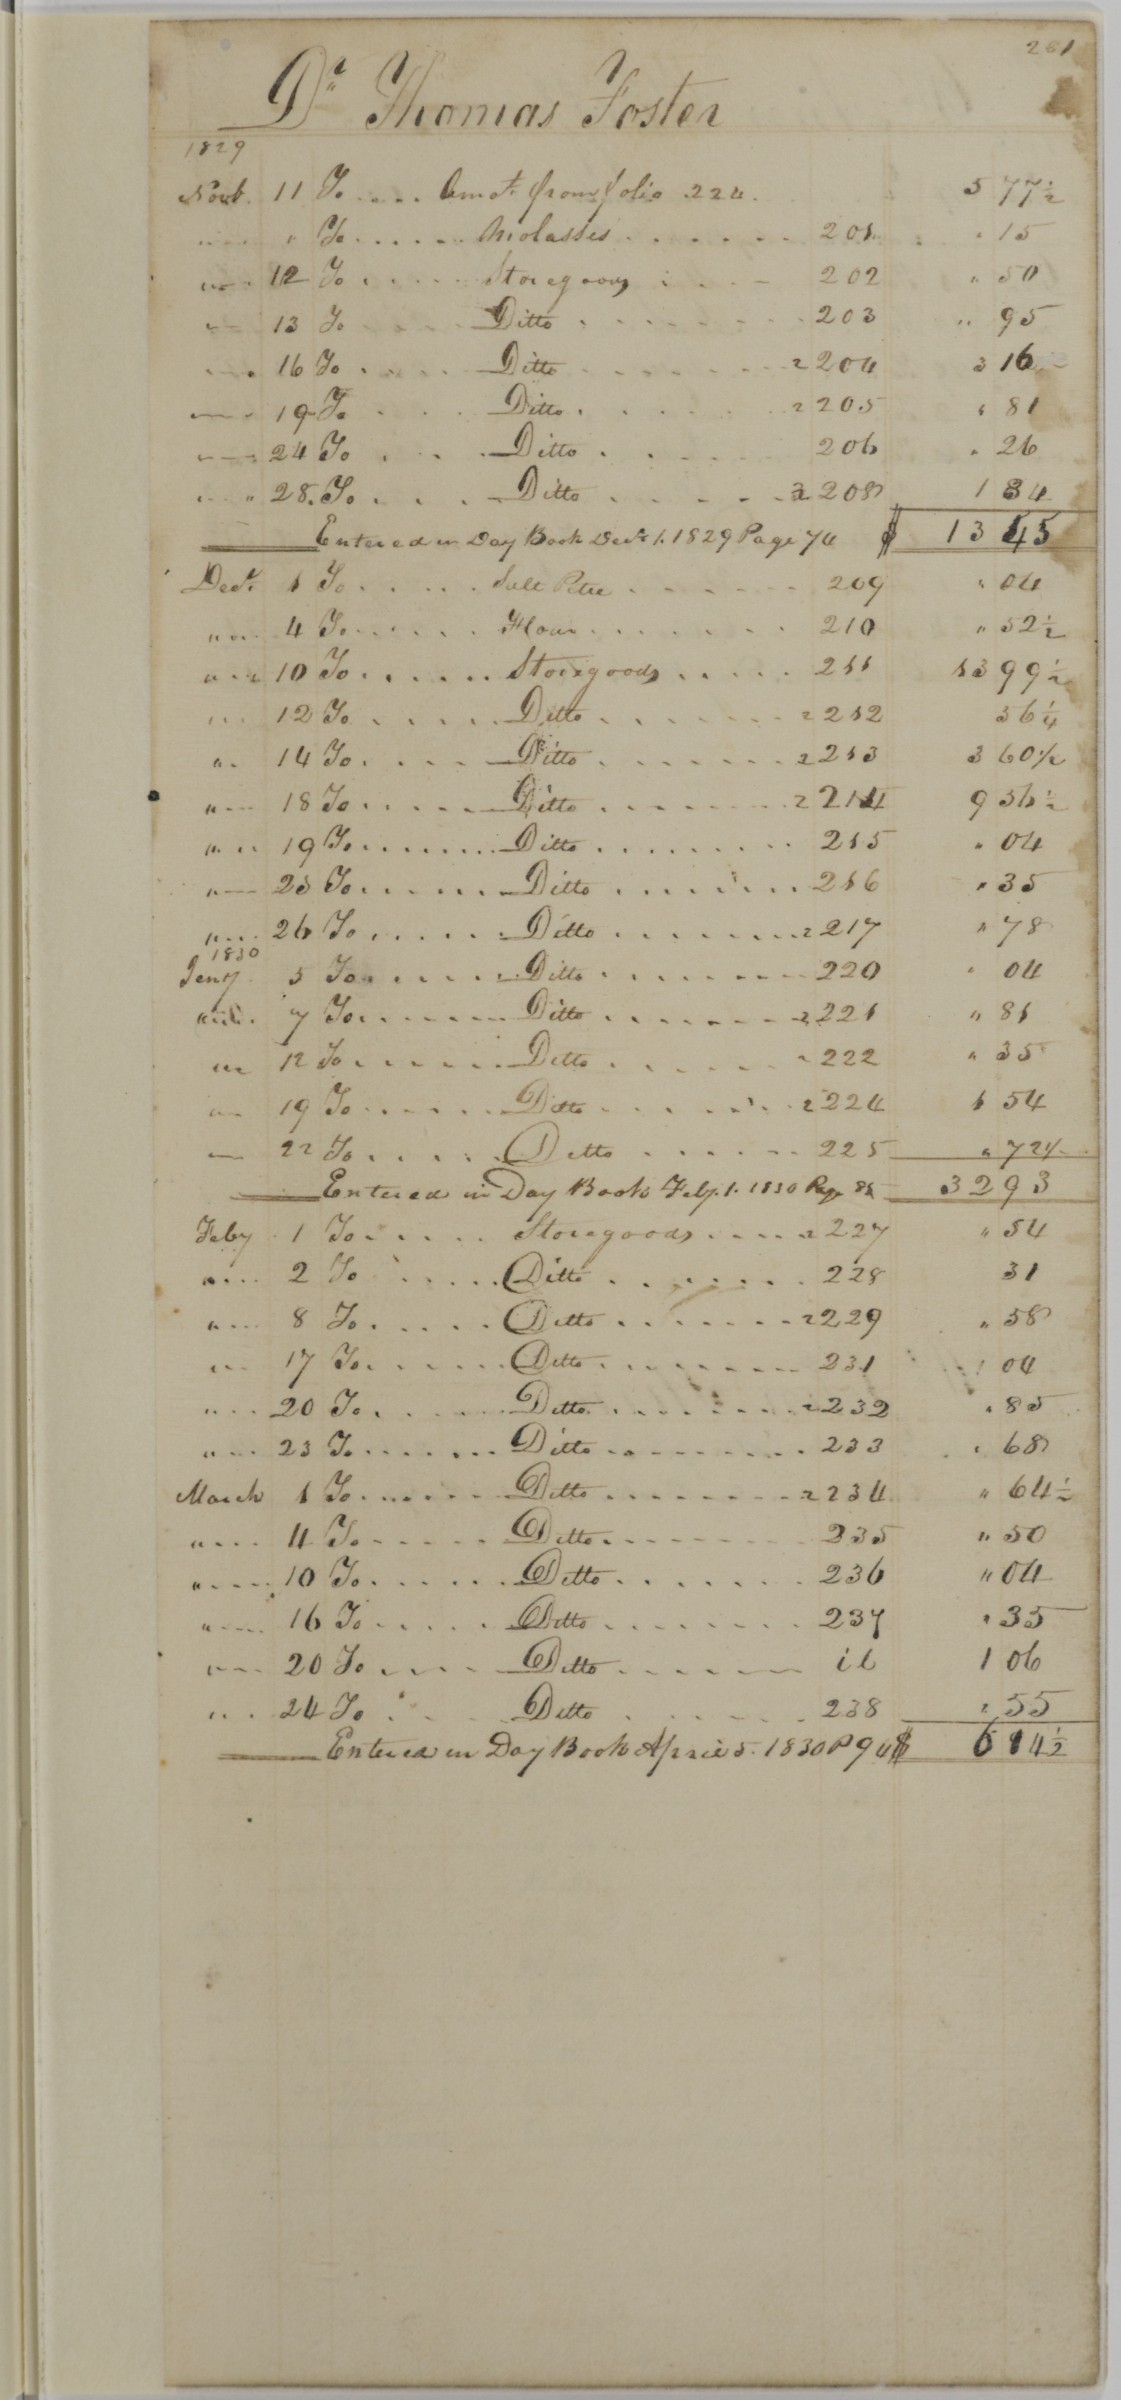 281
Dr. Thomas Foster
1829
Novb. 11 To .... Amot. from folio 224. 5 77½
" " To ...... Molasses ...... 201 " 15
" 12 To ..... Storegoods .... 202 " 50
" 13 To ..... Ditto ....... 203 " 95
" 16 To ..... Ditto ....... 2 204 3 16
" 19 To .... Ditto ...... 2 205 " 81
" 24 To .... Ditto ..... 206 " 26
" 28. To .... Ditto ..... 2 208 1 84
Entered in Day Book Decr. 1. 1829 Page 74 $ 13 45
Decr. 1 To ..... Salt Petre ...... 209 " 04
" 4 To ...... Flour ....... 210 " 52½
" 10 To ...... Storegoods ..... 211 13 99½
" 12 To ..... Ditto ...... 2 212 56¼
" 14 To .... Ditto ...... 2 213 3 60½
" 18 To ..... Ditto ...... 2 214 9 56½
" 19 To ....... Ditto ......... 215 " 04
" 25 To ...... Ditto ....... 216 " 35
" 26 To ...... Ditto ........ 2 217 " 78
1830
Jany. 5 To ...... Ditto ....... 220 " 04
" 7 To ...... Ditto ....... 2 221 " 81
" 12 To ...... Ditto ...... 2 222 " 35
" 19 To ...... Ditto ...... 2 224 1 54
" 22 To ..... Ditto ...... 225 " 72½
Entered in Day Book Feby. 1. 1830 Page 85 32 93
Feby 1 To ..... Storegoods .... 2 227 " 54
" 2 To ..... Ditto ....... 228 31
" 8 To ..... Ditto ....... 2 229 " 58
" 17 To ...... Ditto ....... 231 " 04
" 20 To ..... Ditto ........ 2 232 " 85
" 23 To ....... Ditto ........ 233 " 68
March 1 To ...... Ditto ........ 2 234 " 64½
" 4 To ..... Ditto ....... 235 " 50
" 10 To ...... Ditto ....... 236 " 04
" 16 To ..... Ditto ....... 237 " 35
" 20 To ..... Ditto ...... ib 1 06
" 24 To .... Ditto ..... 238 " 55
Entered in Day Book April 5. 1830 P 94 $ 6 14½